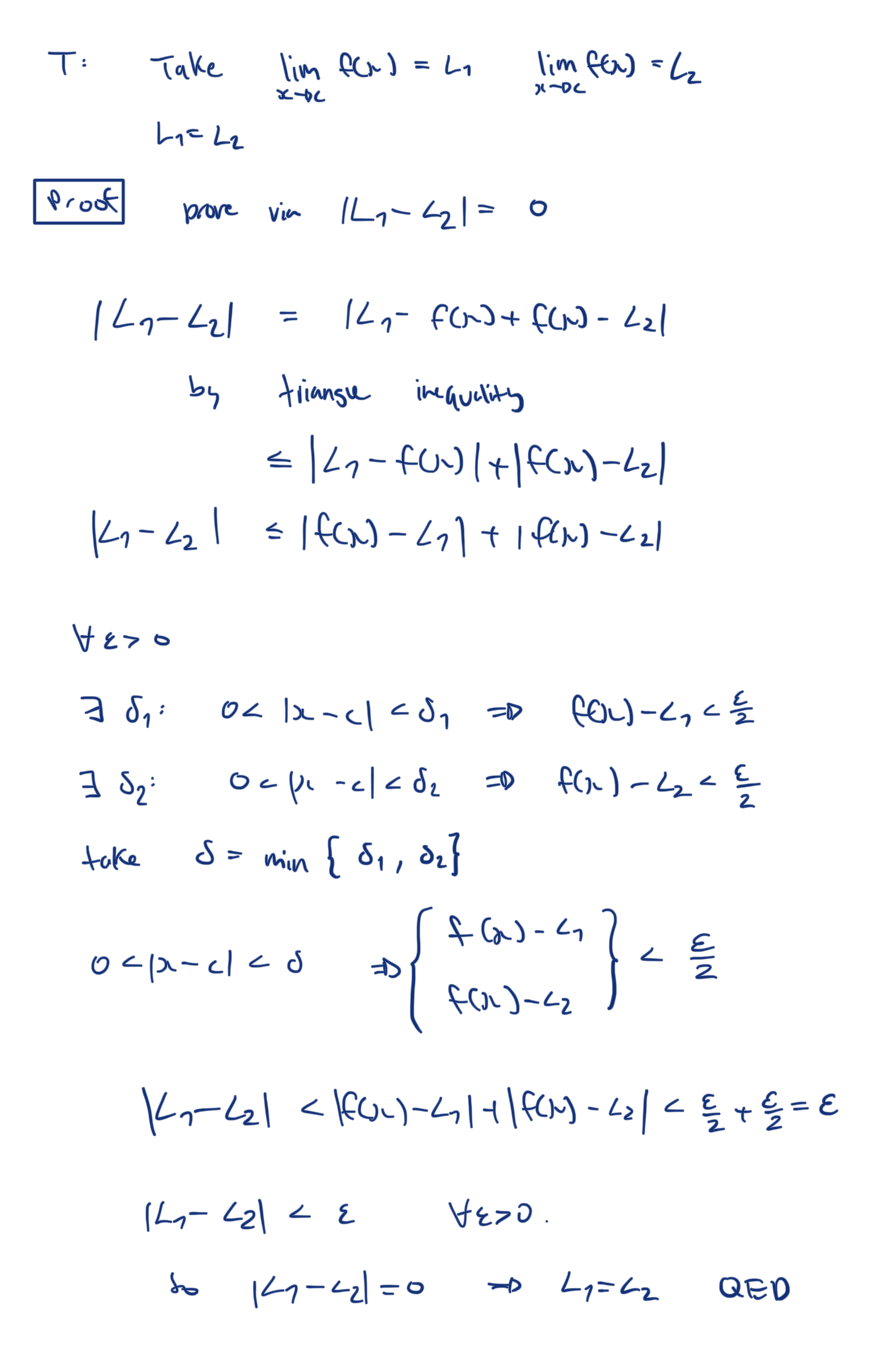 T: Take lim f(x) = L₁ lim f(x) = L₂
x→c x→c
L₁ = L₂
Proof prove via |L₁ - L₂| = 0
|L₁ - L₂| = |L₁ - f(x) + f(x) - L₂|
by triangle inequality
≤ |L₁ - f(x)| + |f(x) - L₂|
|L₁ - L₂| ≤ |f(x) - L₁| + |f(x) - L₂|
∀ ε > 0
∃ δ₁: 0 < |x - c| < δ₁ ⇒ f(x) - L₁ < ε/2
∃ δ₂: 0 < |x - c| < δ₂ ⇒ f(x) - L₂ < ε/2
take δ = min { δ₁, δ₂ }
0 < |x - c| < δ ⇒ { f(x) - L₁
f(x) - L₂ } < ε/2
|L₁ - L₂| < |f(x) - L₁| + |f(x) - L₂| < ε/2 + ε/2 = ε
|L₁ - L₂| < ε ∀ε>0.
so |L₁ - L₂| = 0 ⇒ L₁ = L₂ QED